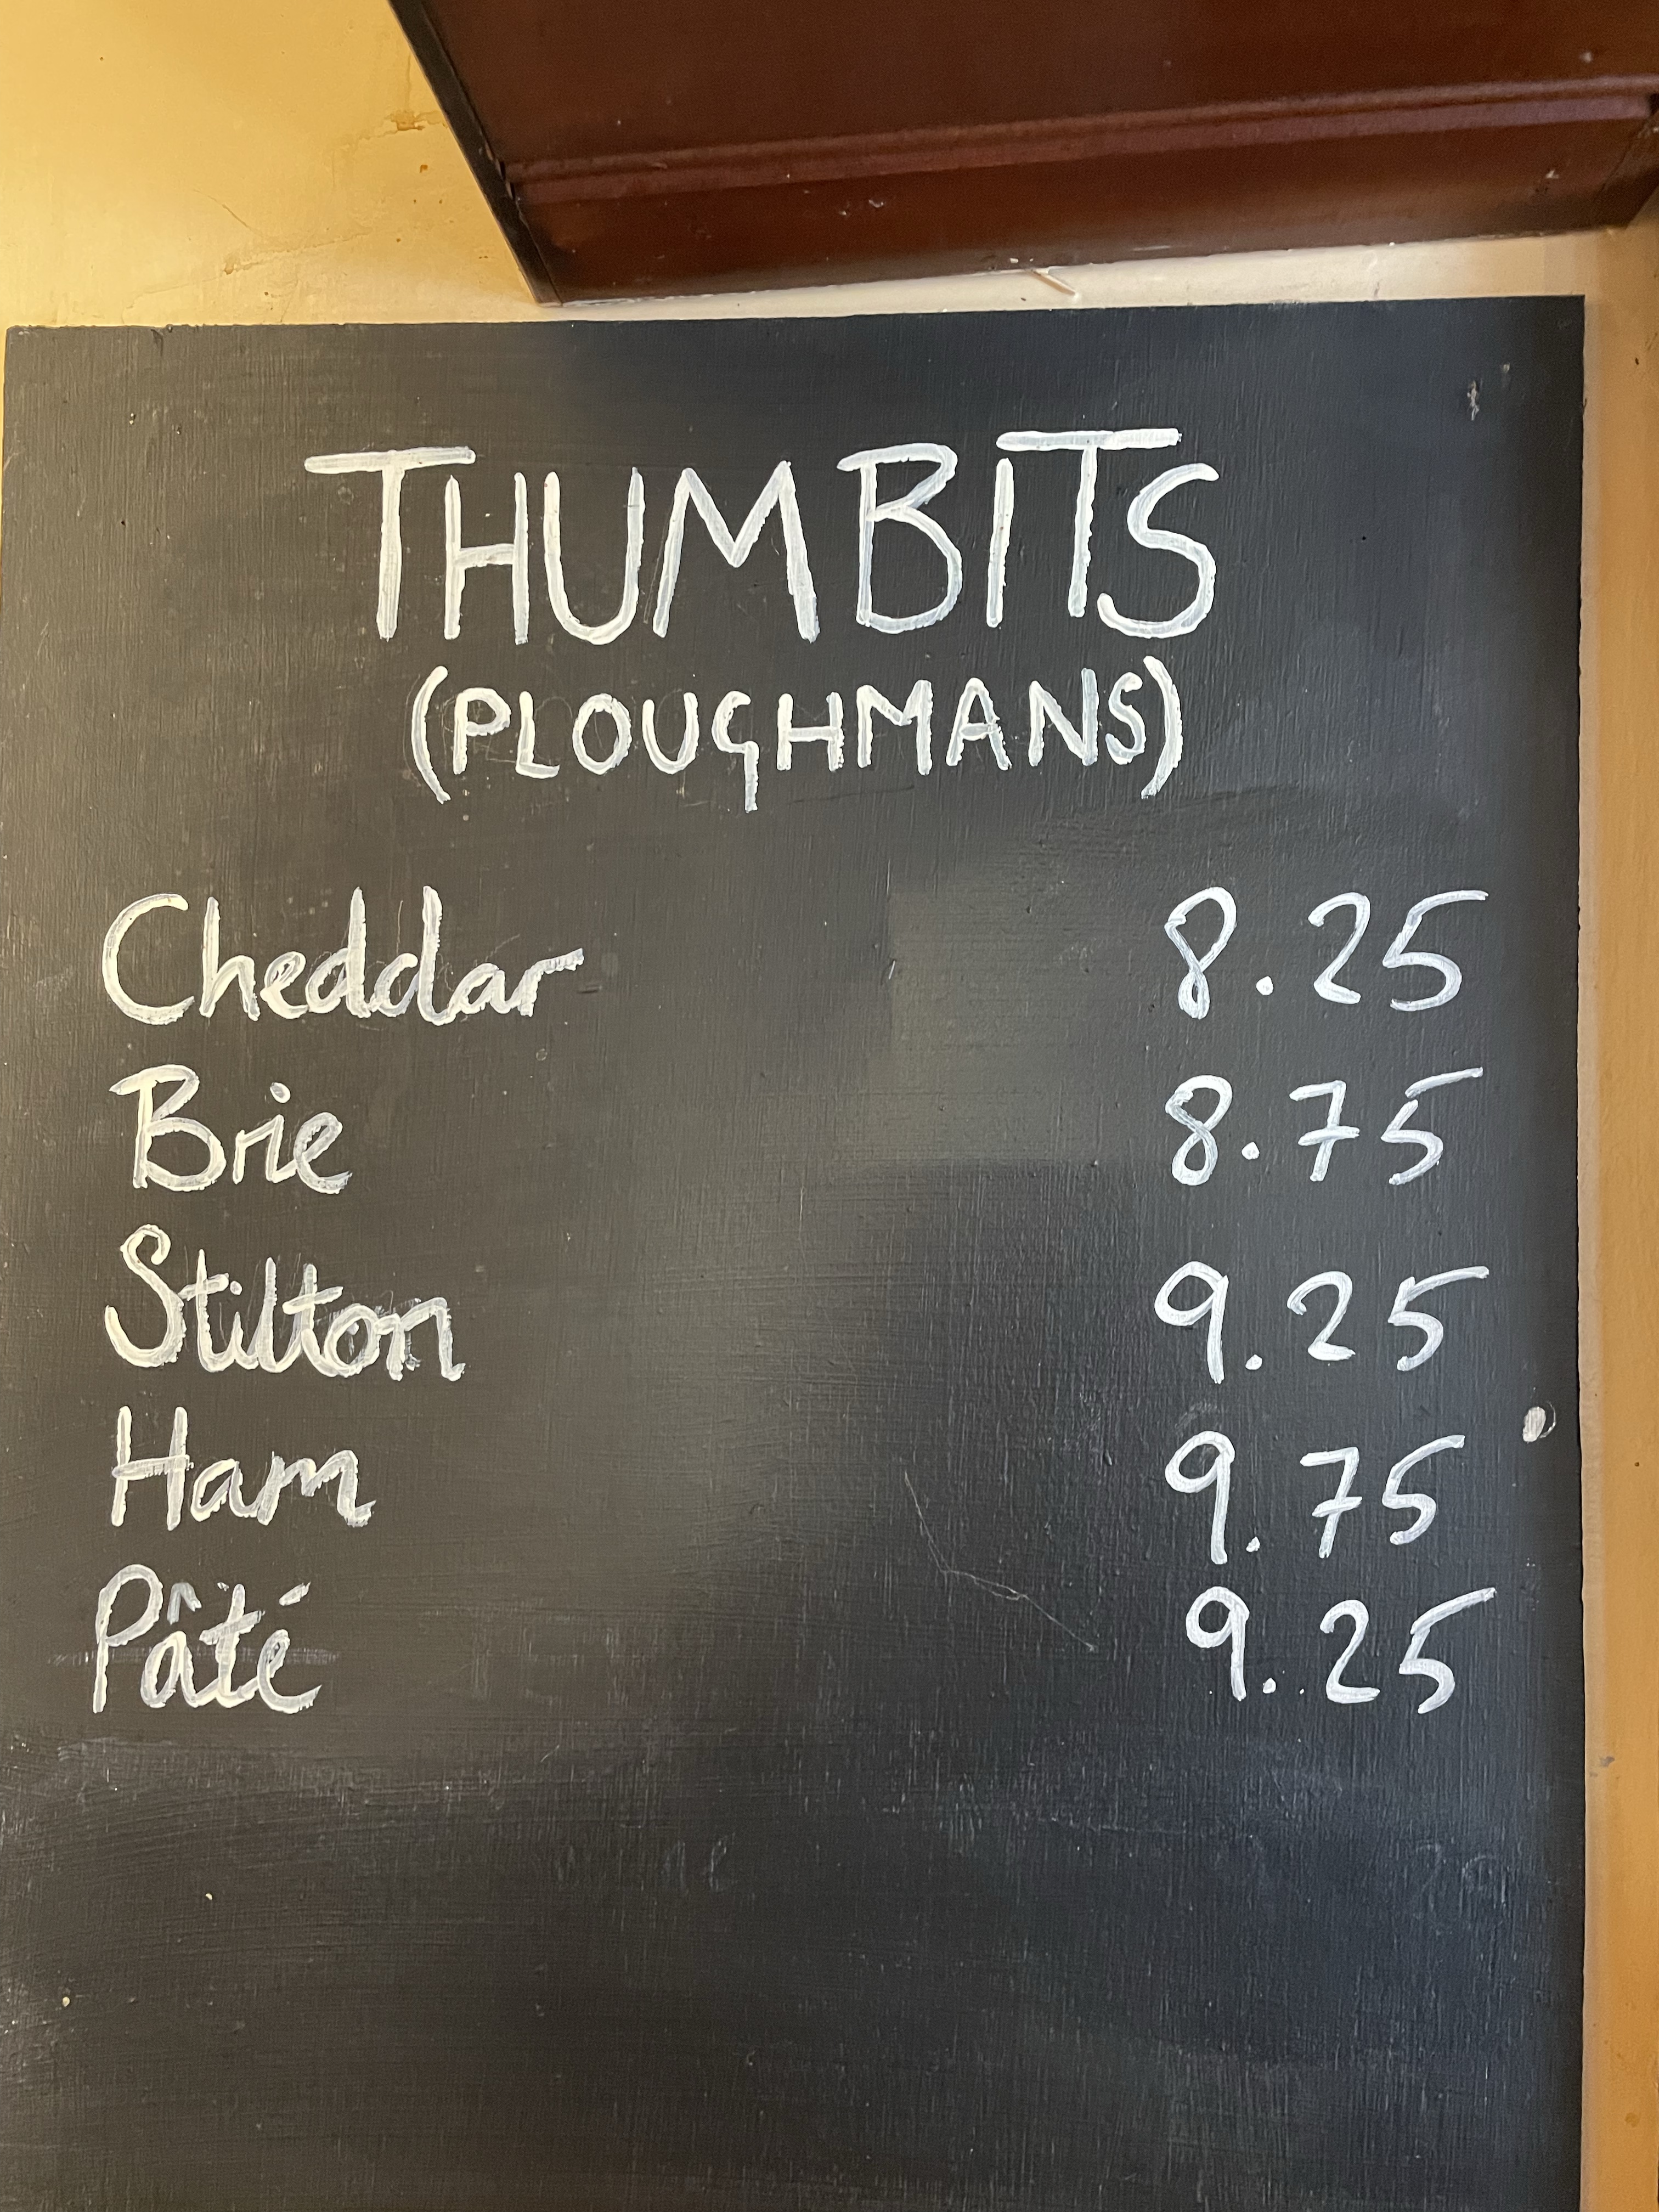 THUMBITS
(PLOUGHMANS)
Cheddar 8.25
Brie 8.75
Stilton 9.25
Ham 9.75
Pâté 9.25